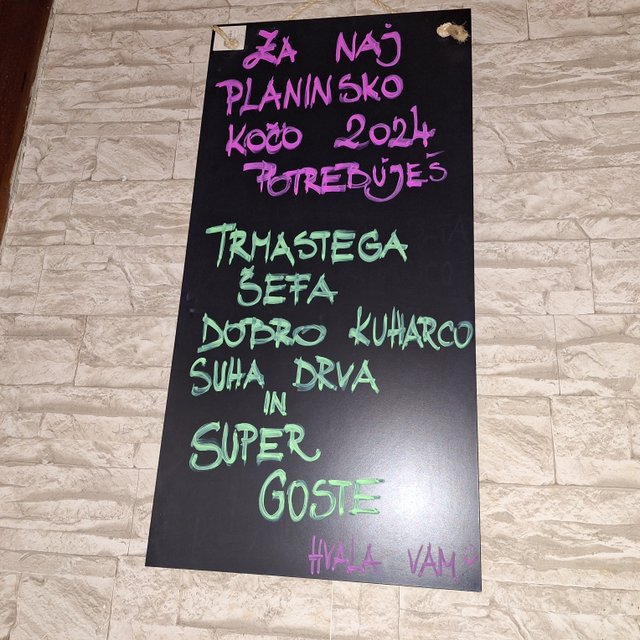 ZA NAJ
PLANINSKO
KOČO 2024
POTREBUJEŠ
TRMASTEGA
ŠEFA
DOBRO KUHARCO
SUHA DRVA
IN
SUPER
GOSTE
HVALA VAM